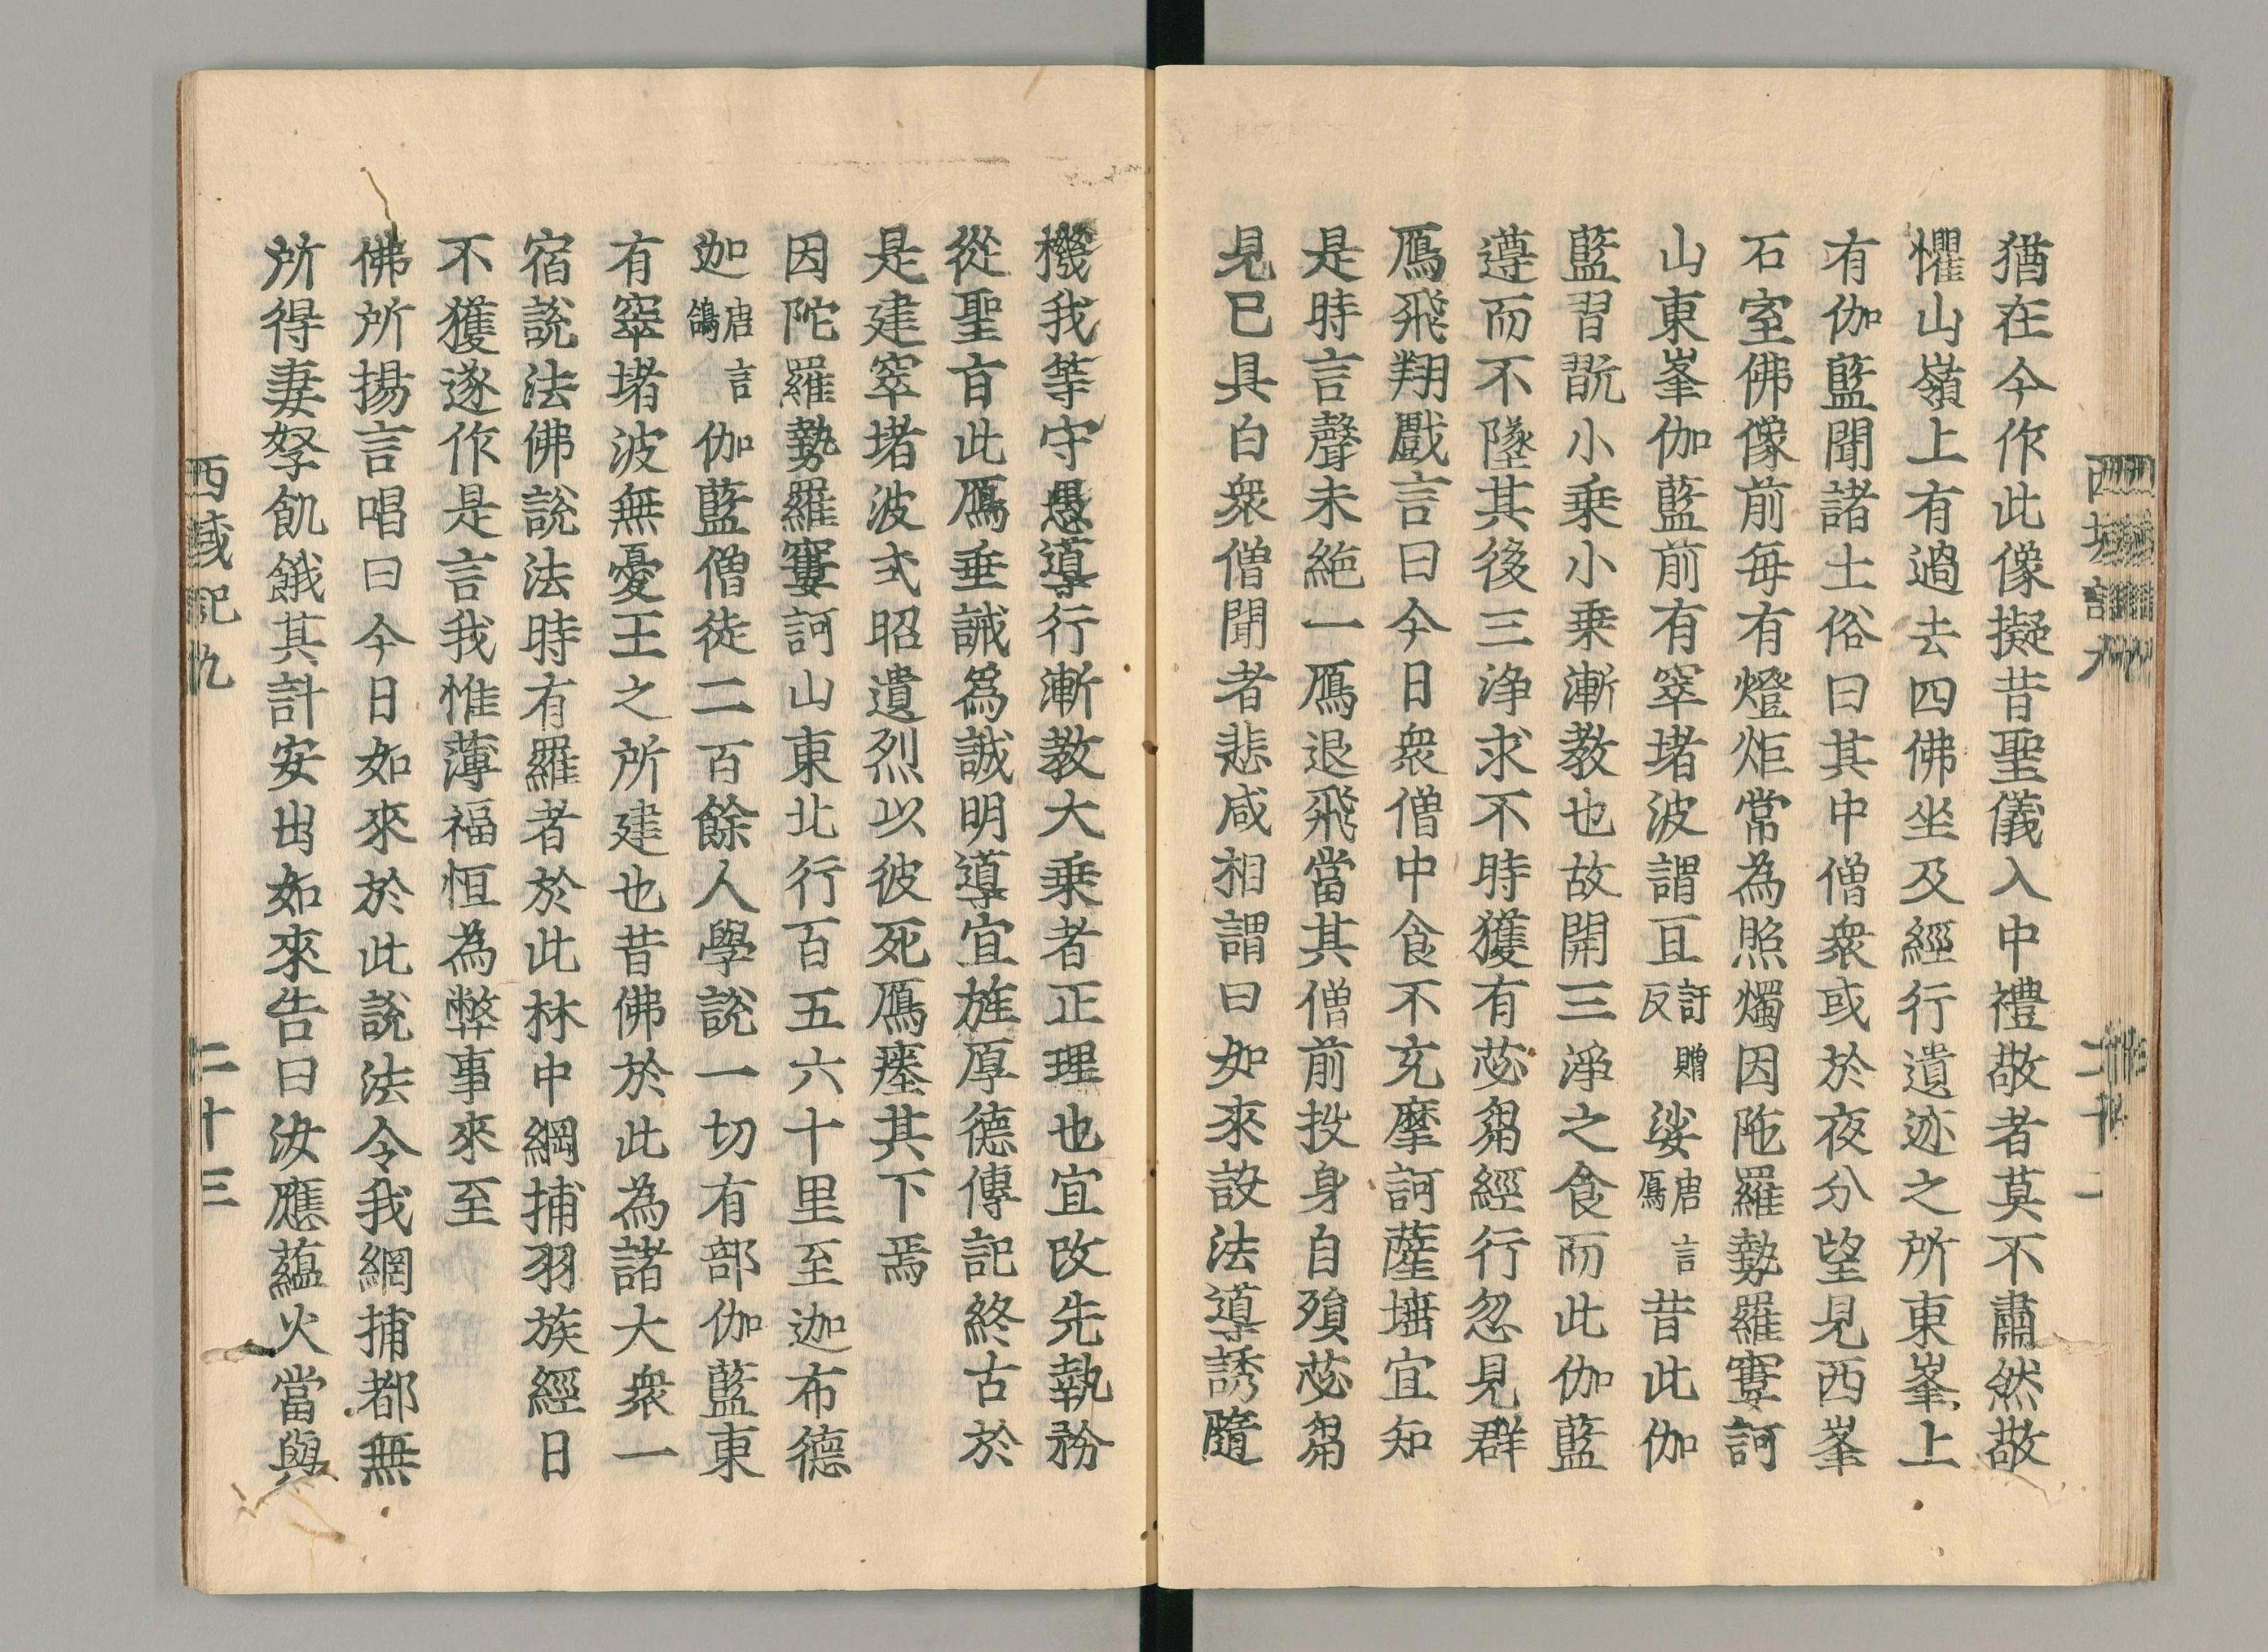 猶在今作此像擬昔聖儀入中禮敬者莫不肅然敬
懼山嶺上有過去四佛坐及經行遺迹之所東峯上
有伽藍聞諸土俗曰其中僧衆或於夜分望見西峯
石室佛像前每有燈炬常為照燭因陁羅勢羅窶訶
山東峯伽藍前有窣堵波謂亘許贈反娑唐言鴈昔此伽
藍習翫小乗小乗漸教也故開三淨之食而此伽藍
遵而不墜其後三淨求不時獲有苾芻經行忽見群
鴈飛翔戲言曰今日衆僧中食不充摩訶薩埵宜知
是時言聲未絶一鴈退飛當其僧前投身自殞苾芻
見已具白衆僧聞者悲咸相謂曰如來設法導誘隨
機我等守愚導行漸教大乗者正理也宜改先執務
從聖旨此鴈垂誡為誠明導宜旌厚德傳記終古於
是建窣堵波式昭遺烈以彼死鴈瘞其下焉
因陀羅勢羅窶訶山東北行百五六十里至迦布德
迦唐言鴿伽藍僧徒二百餘人學說一切有部伽藍東
有窣堵波無憂王之所建也昔佛於此為諸大衆一
宿說法佛說法時有羅者於此林中網捕羽族經日
不獲遂作是言我惟薄福恒為弊事來至
佛所揚言唱曰今日如來於此說法令我網捕都無
所得妻孥飢餓其計安出如來告曰汝應藴火當與
西域記九
二十三